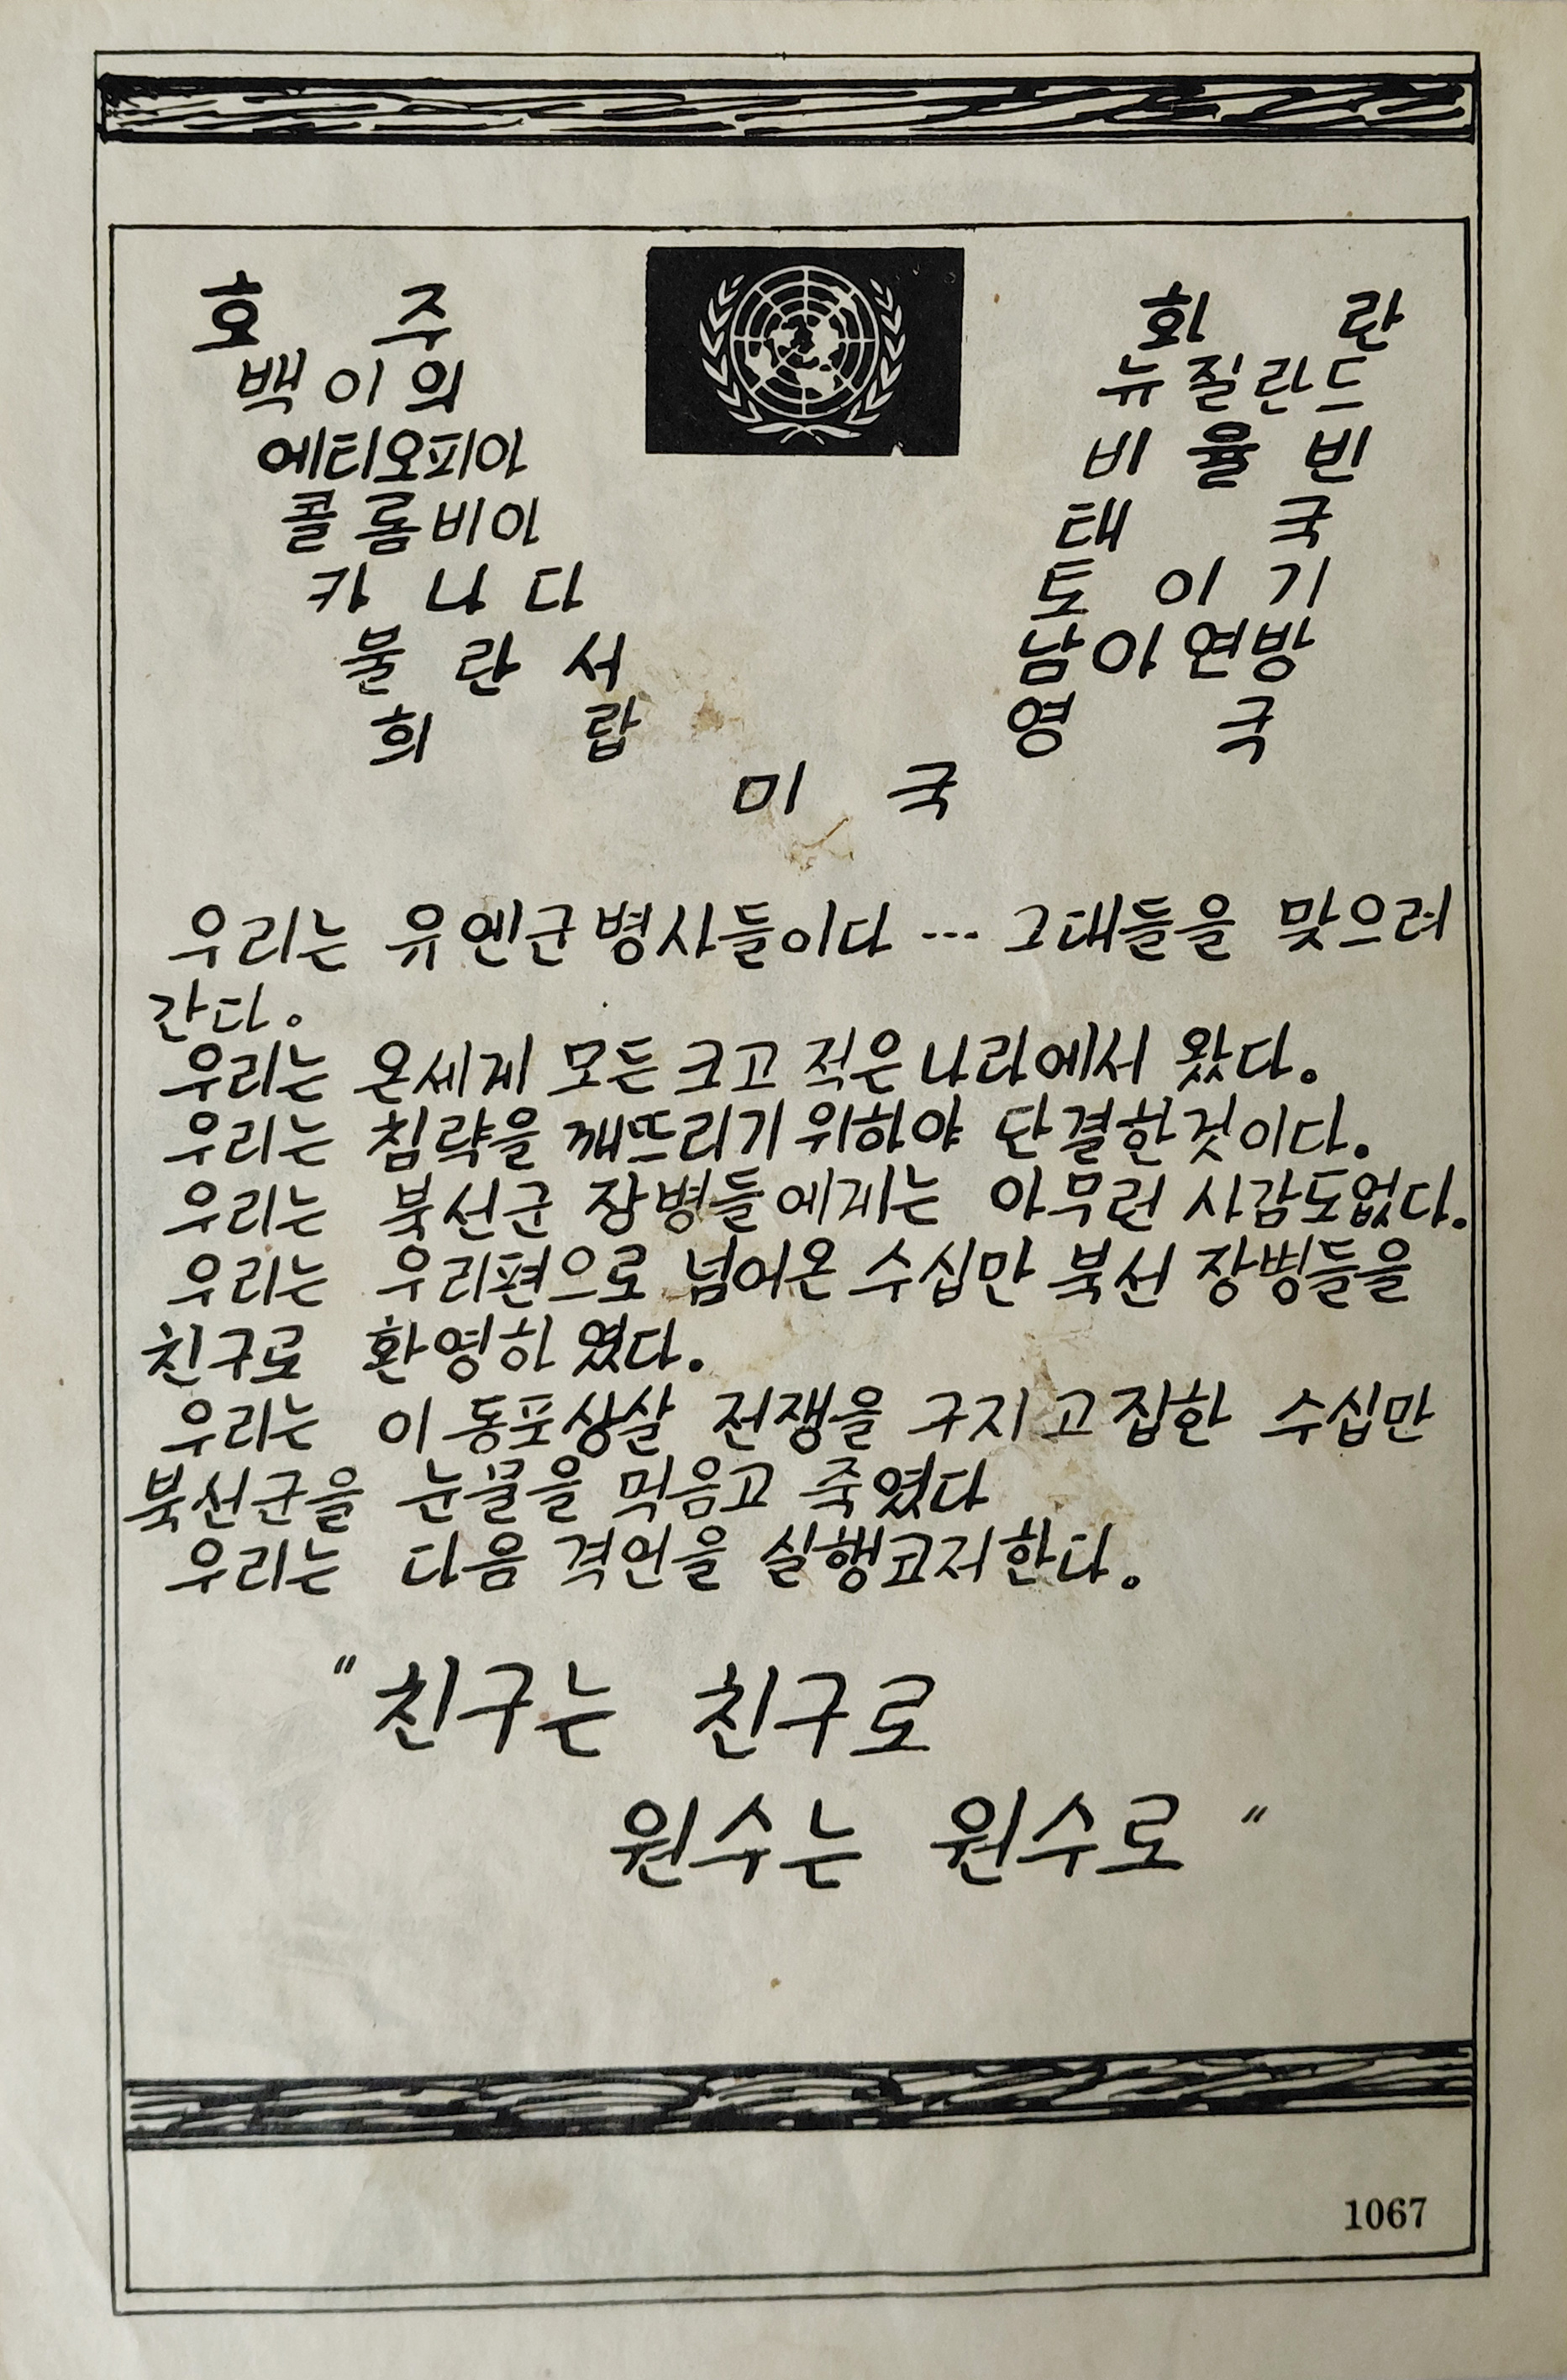 호 주
백이의
에티오피아
콜롬비아
카나다
불란서
희 랍
화 란
뉴질란드
비율빈
태 국
토이기
남아연방
영 국
미 국
우리는 유엔군병사들이다 … 그대들을 맞으려
간다。
우리는 온세게 모든크고 적은나라에서 왔다.
우리는 침략을 깨뜨리기 위하야 단결한것이다.
우리는 북선군 장병들에게는 아무런 사감도없다.
우리는 우리편으로 넘어온 수십만 북선 장병들을
친구로 환영하였다.
우리는 이동포상살 전쟁을 구지고집한 수십만
북선군을 눈물을 먹음고 죽였다
우리는 다음 격언을 실행고저한다。
"친구는 친구로
원수는 원수로"
1067